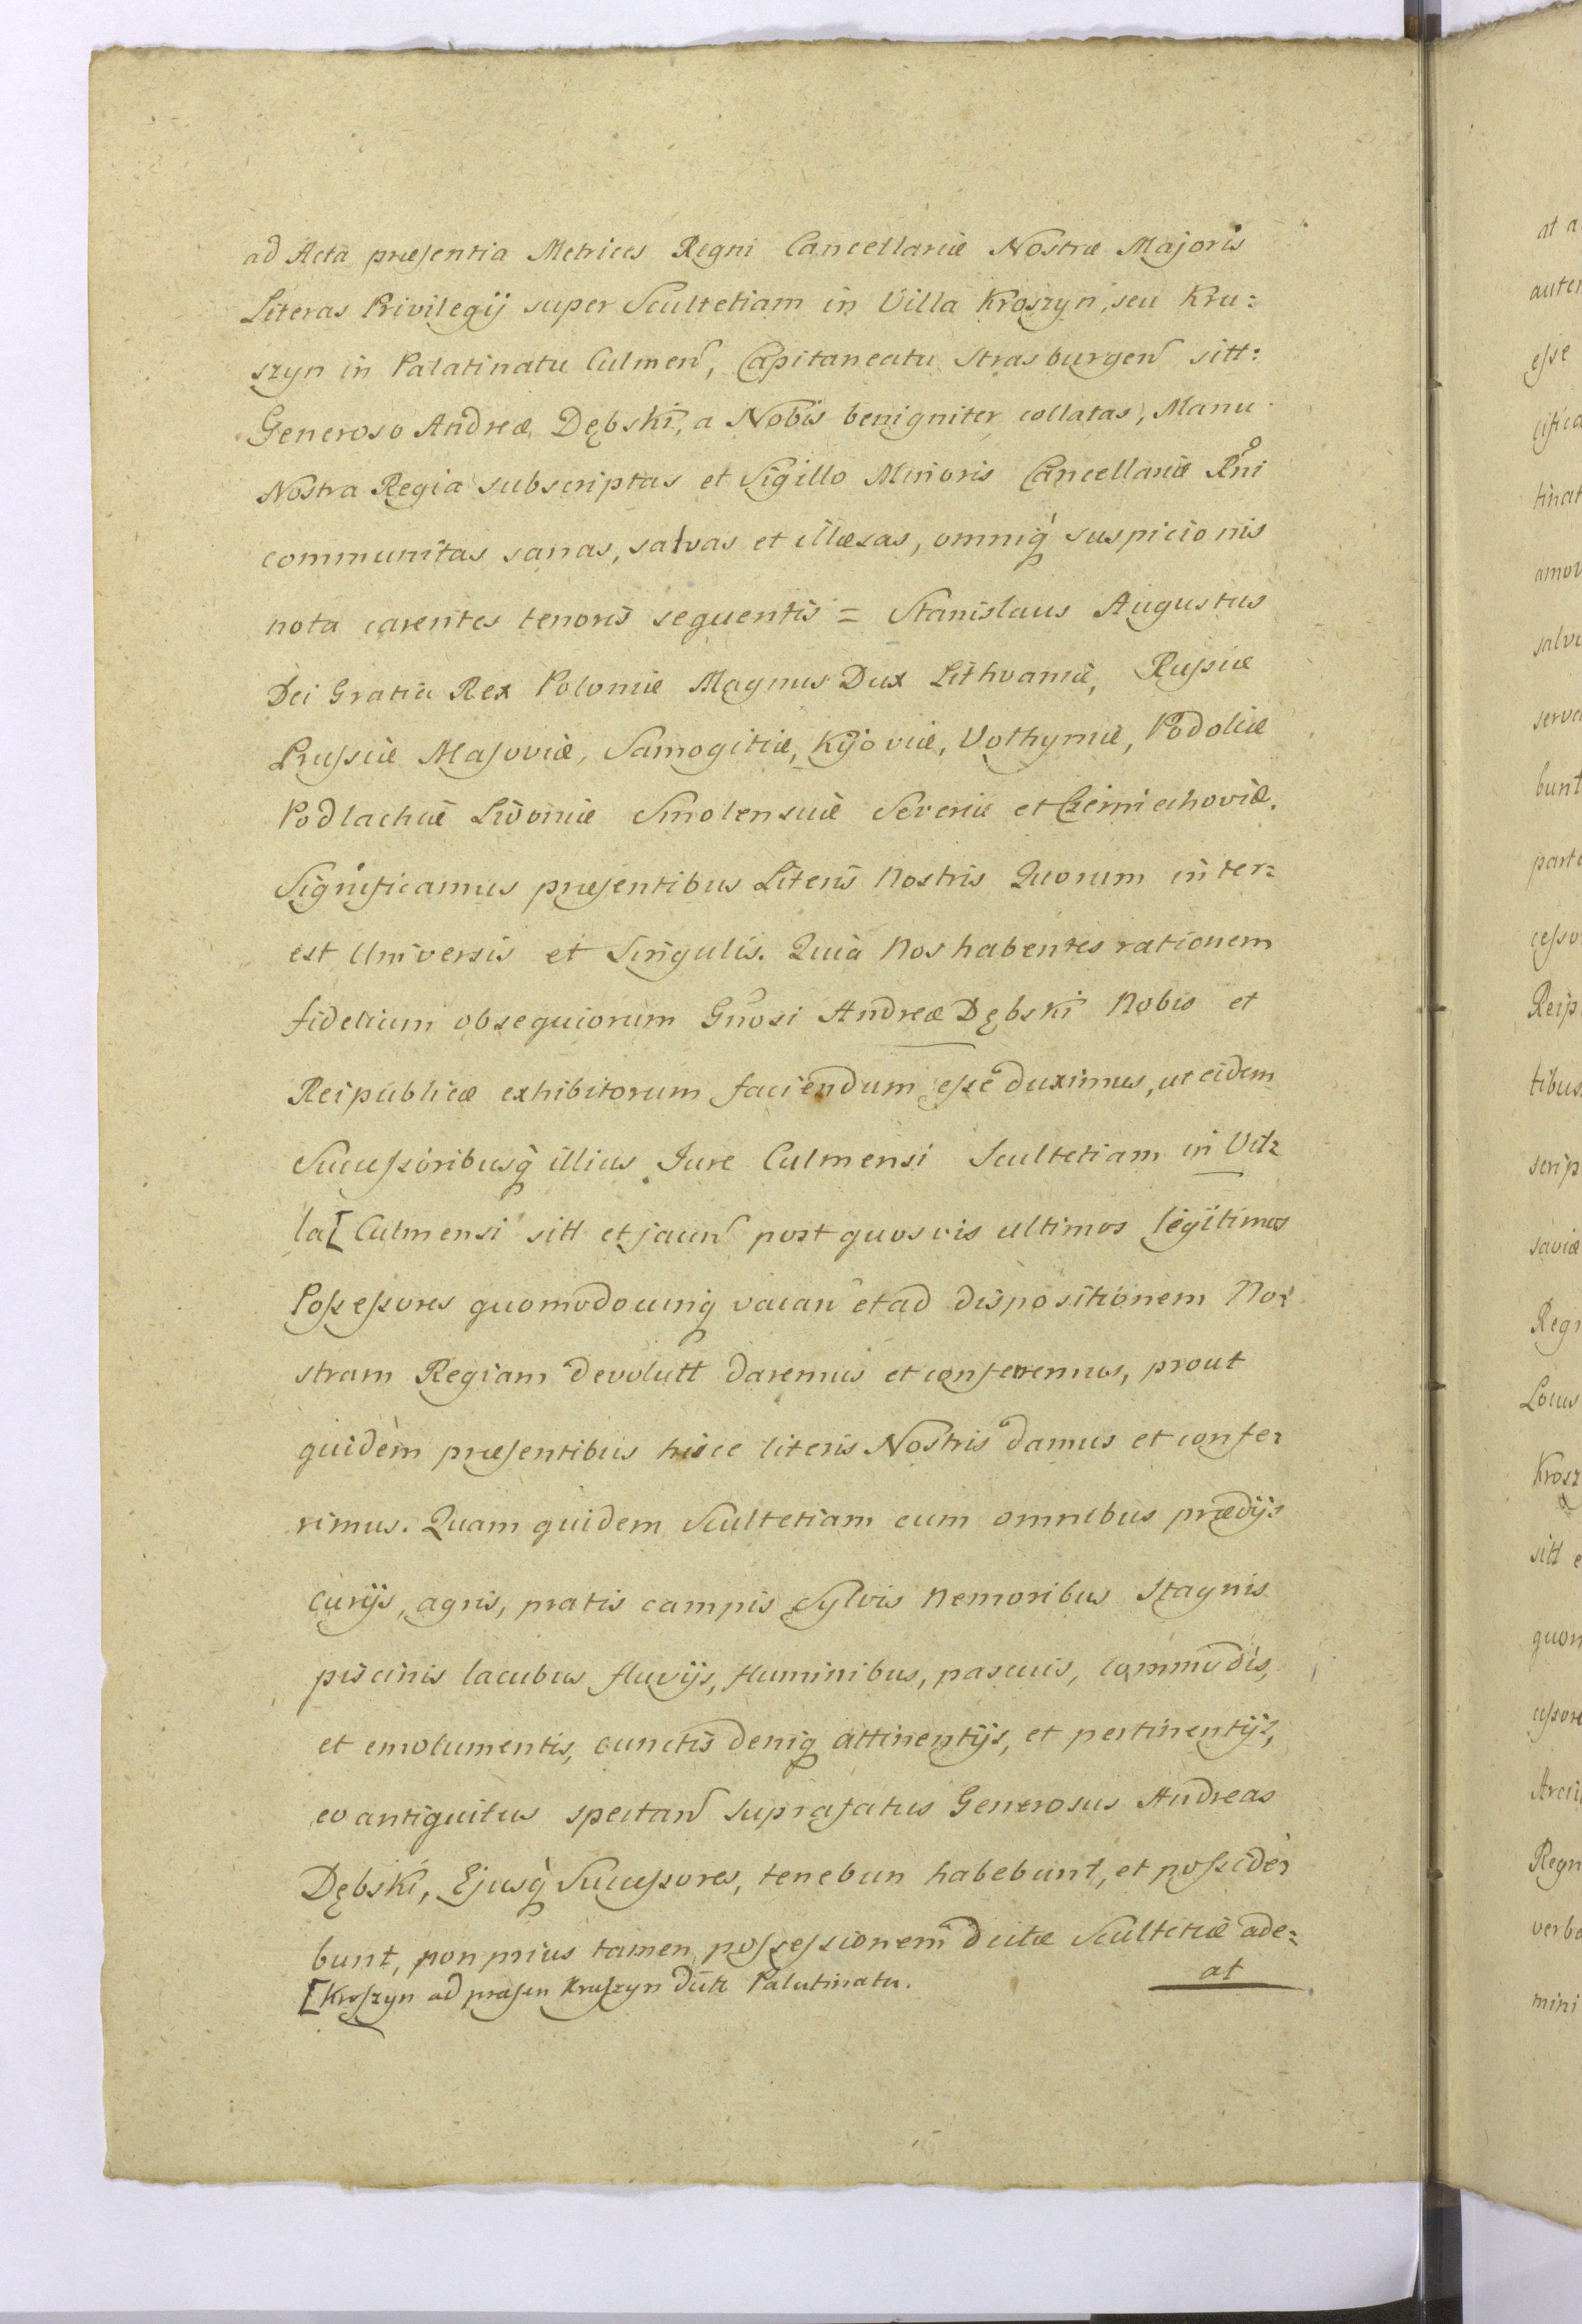 ad Acta præsentia Metrices Regni Cancellariæ Nostræ Majoris
Literas Privilegij super Scultetiam in Villa Kroszyn, seu Kru=
szyn in Palatinatu Culmen, Capitaneatu Strasburgen sitt:
Generoso Andreæ Dębski, a Nobis benigniter collatas, Manu
Nostra Regia subscriptas et Sigillo Minoris Cancellariæ Rñi
communitas sanas, salvas et illæsas, omniq suspicionis
nota carentes tenoris sequentis = Stanislaus Augustus
Dei Gratia Rex Poloniæ Magnus Dux Lithvaniæ, Russiæ
Prussiæ Masoviæ, Samogitiæ, Kijoviæ, Volhyniæ, Podoliæ
Podlachiæ Livoniæ Smolensciæ Severiæ et Czerniechoviæ.
Significamus præsentibus Literis Nostris Quorum inter=
est Universis et Singulis. Quia Nos habentes rationem
fidelium obsequiorum Gñosi Andreæ Dębski Nobis et
Reipublicæ exhibitorum faciendum esse duximus, ut eidem
Successoribusq illius Jure Culmensi Scultetiam in Vil=
la [ Culmensi sitt et jacen post quosvis ultimos legitimos
Possessores quomodocunq vacan et ad dispositionem No=
stram Regiam devolutt daremus et conferremus, prout
quidem præsentibus hisce literis Nostris damus et confe=
rimus. Quam quidem Scultetiam cum omnibus prædijs
curijs, agris, pratis campis Sylvis Nemoribus Stagnis
piscinis lacubus fluvijs, fluminibus, pascuis, commodis,
et emolumentis, cunctis deniq attinentijs, et pertinentijs,
eo antiquitus spectan suprafatus Generosus Andreas
Dębski, Ejusq Successores, tenebun habebunt, et posside=
bunt, non prius tamen possessionem dictæ Scultetiæ ade=
at
[ Kroszyn ad præsen Kruszyn dict Palatinatu.
at a
auter
esse
cifica
tinat
amov
salvi
serva
bunt
parte
cesso
Reip
tibus
scrip
saviæ
Regn
Locus
Krosz
sitt e
quom
cessore
Arci
Regn
verbo
mini